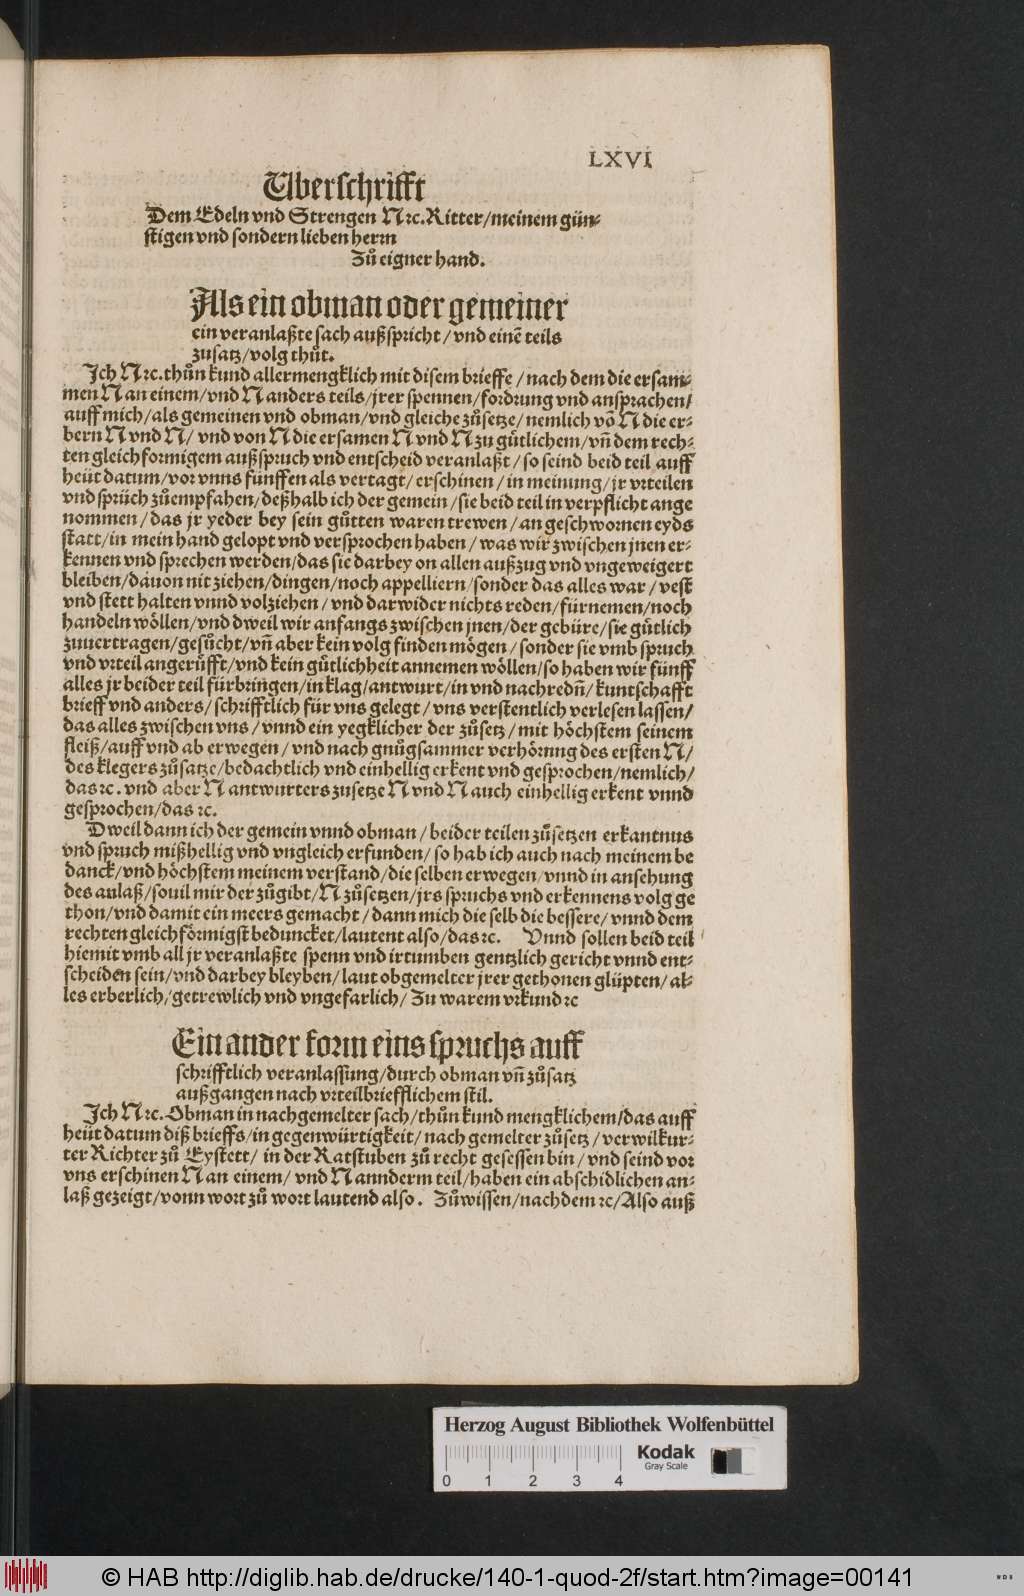 LXVI
Uberschrifft
Dem Edeln vnd Strengen N ꝛc. Ritter/meinem gün-
stigen vnd sondern lieben herrn
Zů eigner hand.
Als ein obman oder gemeiner
ein veranlaßte sach außspricht/vnd einē teils
zusatz/volg thůt.
Ich N ꝛc. thůn kund allermengklich mit disem brieffe/nach dem die ersam-
men N an einem/vnd N anders teils/jrer spennen/fordrung vnd ansprachen/
auff mich/als gemeinen vnd obman/vnd gleiche zůsetze/nemlich võ N die er-
bern N vnd N/ vnd von N die ersamen N vnd N zu gůtlichem/vñ dem rech-
ten gleichformigem außspruch vnd entscheid veranlaßt/so seind beid teil auff
heüt datum/vor vnns fünffen als vertagt/erschinen/in meinung/jr vrteilen
vnd sprüch zůempfahen/deßhalb ich der gemein/sie beid teil in verpflicht ange
nommen/das jr yeder bey sein gůtten waren trewen/an geschwornen eyds
statt/in mein hand gelopt vnd versprochen haben/was wir zwischen jnen er-
kennen vnd sprechen werden/das sie darbey on allen außzug vnd vngeweigert
bleiben/dauon nit ziehen/dingen/noch appelliern/sonder das alles war/vest
vnd stett halten vnnd volziehen/vnd darwider nichts reden/fürnemen/noch
handeln wöllen/vnd dweil wir anfangs zwischen jnen/der gebüre/sie gůtlich
zuuertragen/gesůcht/vñ aber kein volg finden mögen/sonder sie vmb spruch
vnd vrteil angerůfft/vnd kein gůtlichheit annemen wöllen/so haben wir fünff
alles jr beider teil fürbringen/in klag/antwurt/in vnd nachredñ/kuntschafft
brieff vnd anders/schrifftlich für vns gelegt/vns verstentlich verlesen lassen/
das alles zwischen vns/vnnd ein yegklicher der zůsetz/mit höchstem seinem
fleiß/auff vnd ab erwegen/vnd nach gnůgsammer verhörung des ersten N/
des klegers zůsatze/bedachtlich vnd einhellig erkent vnd gesprochen/nemlich/
das ꝛc. vnd aber N antwurters zusetze N vnd N auch einhellig erkent vnnd
gesprochen/das ꝛc.
Dweil dann ich der gemein vnnd obman/beider teilen zůsetzen erkantnus
vnd spruch mißhellig vnd vngleich erfunden/so hab ich auch nach meinem be
danck/vnd höchstem meinem verstand/die selben erwegen/vnnd in ansehung
des anlaß/souil mir der zůgibt/N zůsetzen/jrs spruchs vnd erkennens volg ge
thon/vnd damit ein meers gemacht/dann mich die selb die bessere/vnnd dem
rechten gleichförmigst beduncket/lautent also/das ꝛc. Vnnd sollen beid teil
hiemit vmb all jr veranlaßte spenn vnd irtumben gentzlich gericht vnnd ent-
scheiden sein/vnd darbey bleyben/laut obgemelter jrer gethonen glüpten/al-
les erberlich/getrewlich vnd vngefarlich/Zu warem vrkund ꝛc
Ein ander form eins spruchs auff
schrifftlich veranlassung/durch obman vñ zůsatz
außgangen nach vrteilbriefflichem stil.
Ich N ꝛc. Obman in nachgemelter sach/thůn kund mengklichem/das auff
heüt datum diß brieffs/in gegenwürtigkeit/nach gemelter zůsetz/verwilkur-
ter Richter zů Eystett/ in der Ratstuben zů recht gesessen bin/vnd seind vor
vns erschinen N an einem/ vnd N annderm teil/haben ein abschidlichen an-
laß gezeigt/vonn wort zů wort lautend also. Zůwissen/nachdem ꝛc/Also auß
Herzog August Bibliothek Wolfenbüttel
Kodak
Gray Scale
0 1 2 3 4
© HAB http://diglib.hab.de/drucke/140-1-quod-2f/start.htm?image=00141